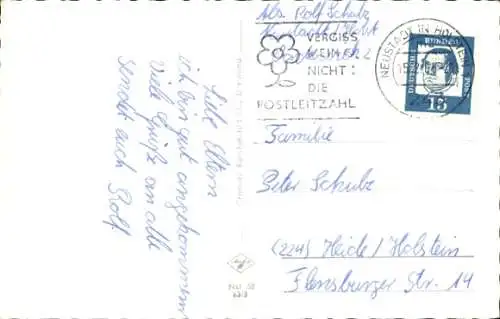 Liebe Eltern
ich bin gut angekommen
viele Grüße an alle
sendet euch Rolf
Abs. Rolf Schulz
Neustadt / Holst
VERGISS
MEIN
NICHT:
DIE
POSTLEITZAHL
NEUSTADT IN HOLSTEIN
DEUTSCHE BUNDESPOST
15
Familie
Peter Schulz
(224) Heide / Holstein
Flensburger Str. 14